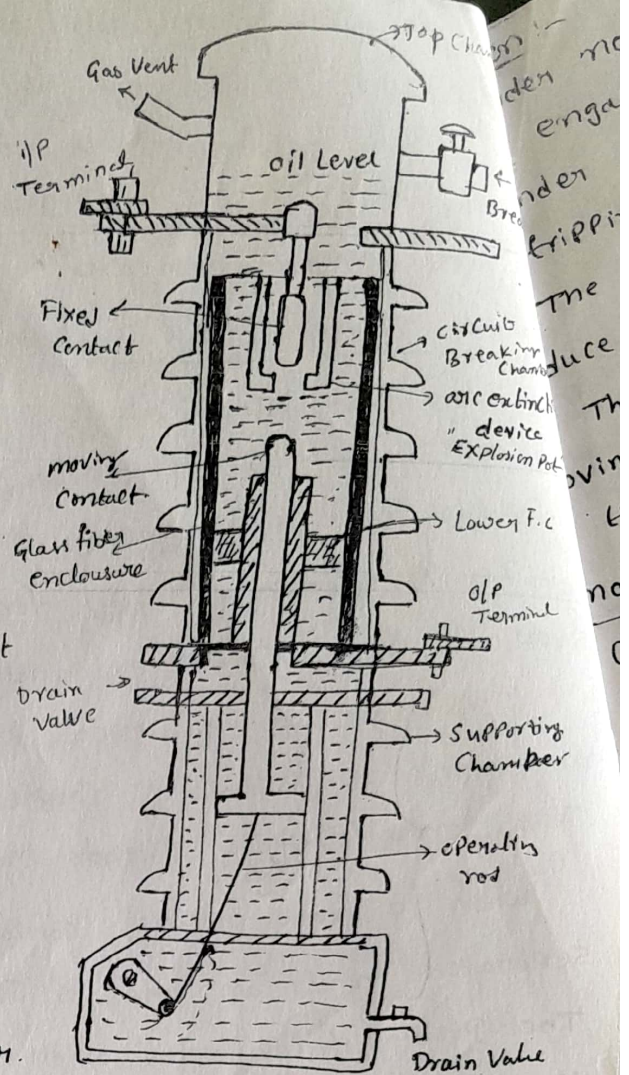 Top Cham
Gas Vent
oil Level
I/P
Terminal
Brea
Fixed
Contact
Circuit
Breaking
Chamb
arc extinch
" device
Explosion Pot
moving
Contact
Glass fiber
enclousure
Lower F.C
O/P
Terminal
Drain
Valve
Supporting
Chamber
operating
rod
Drain Valve
t
r.
der no
enga
nder
trippi
The
duce
Th
ovin
t
no